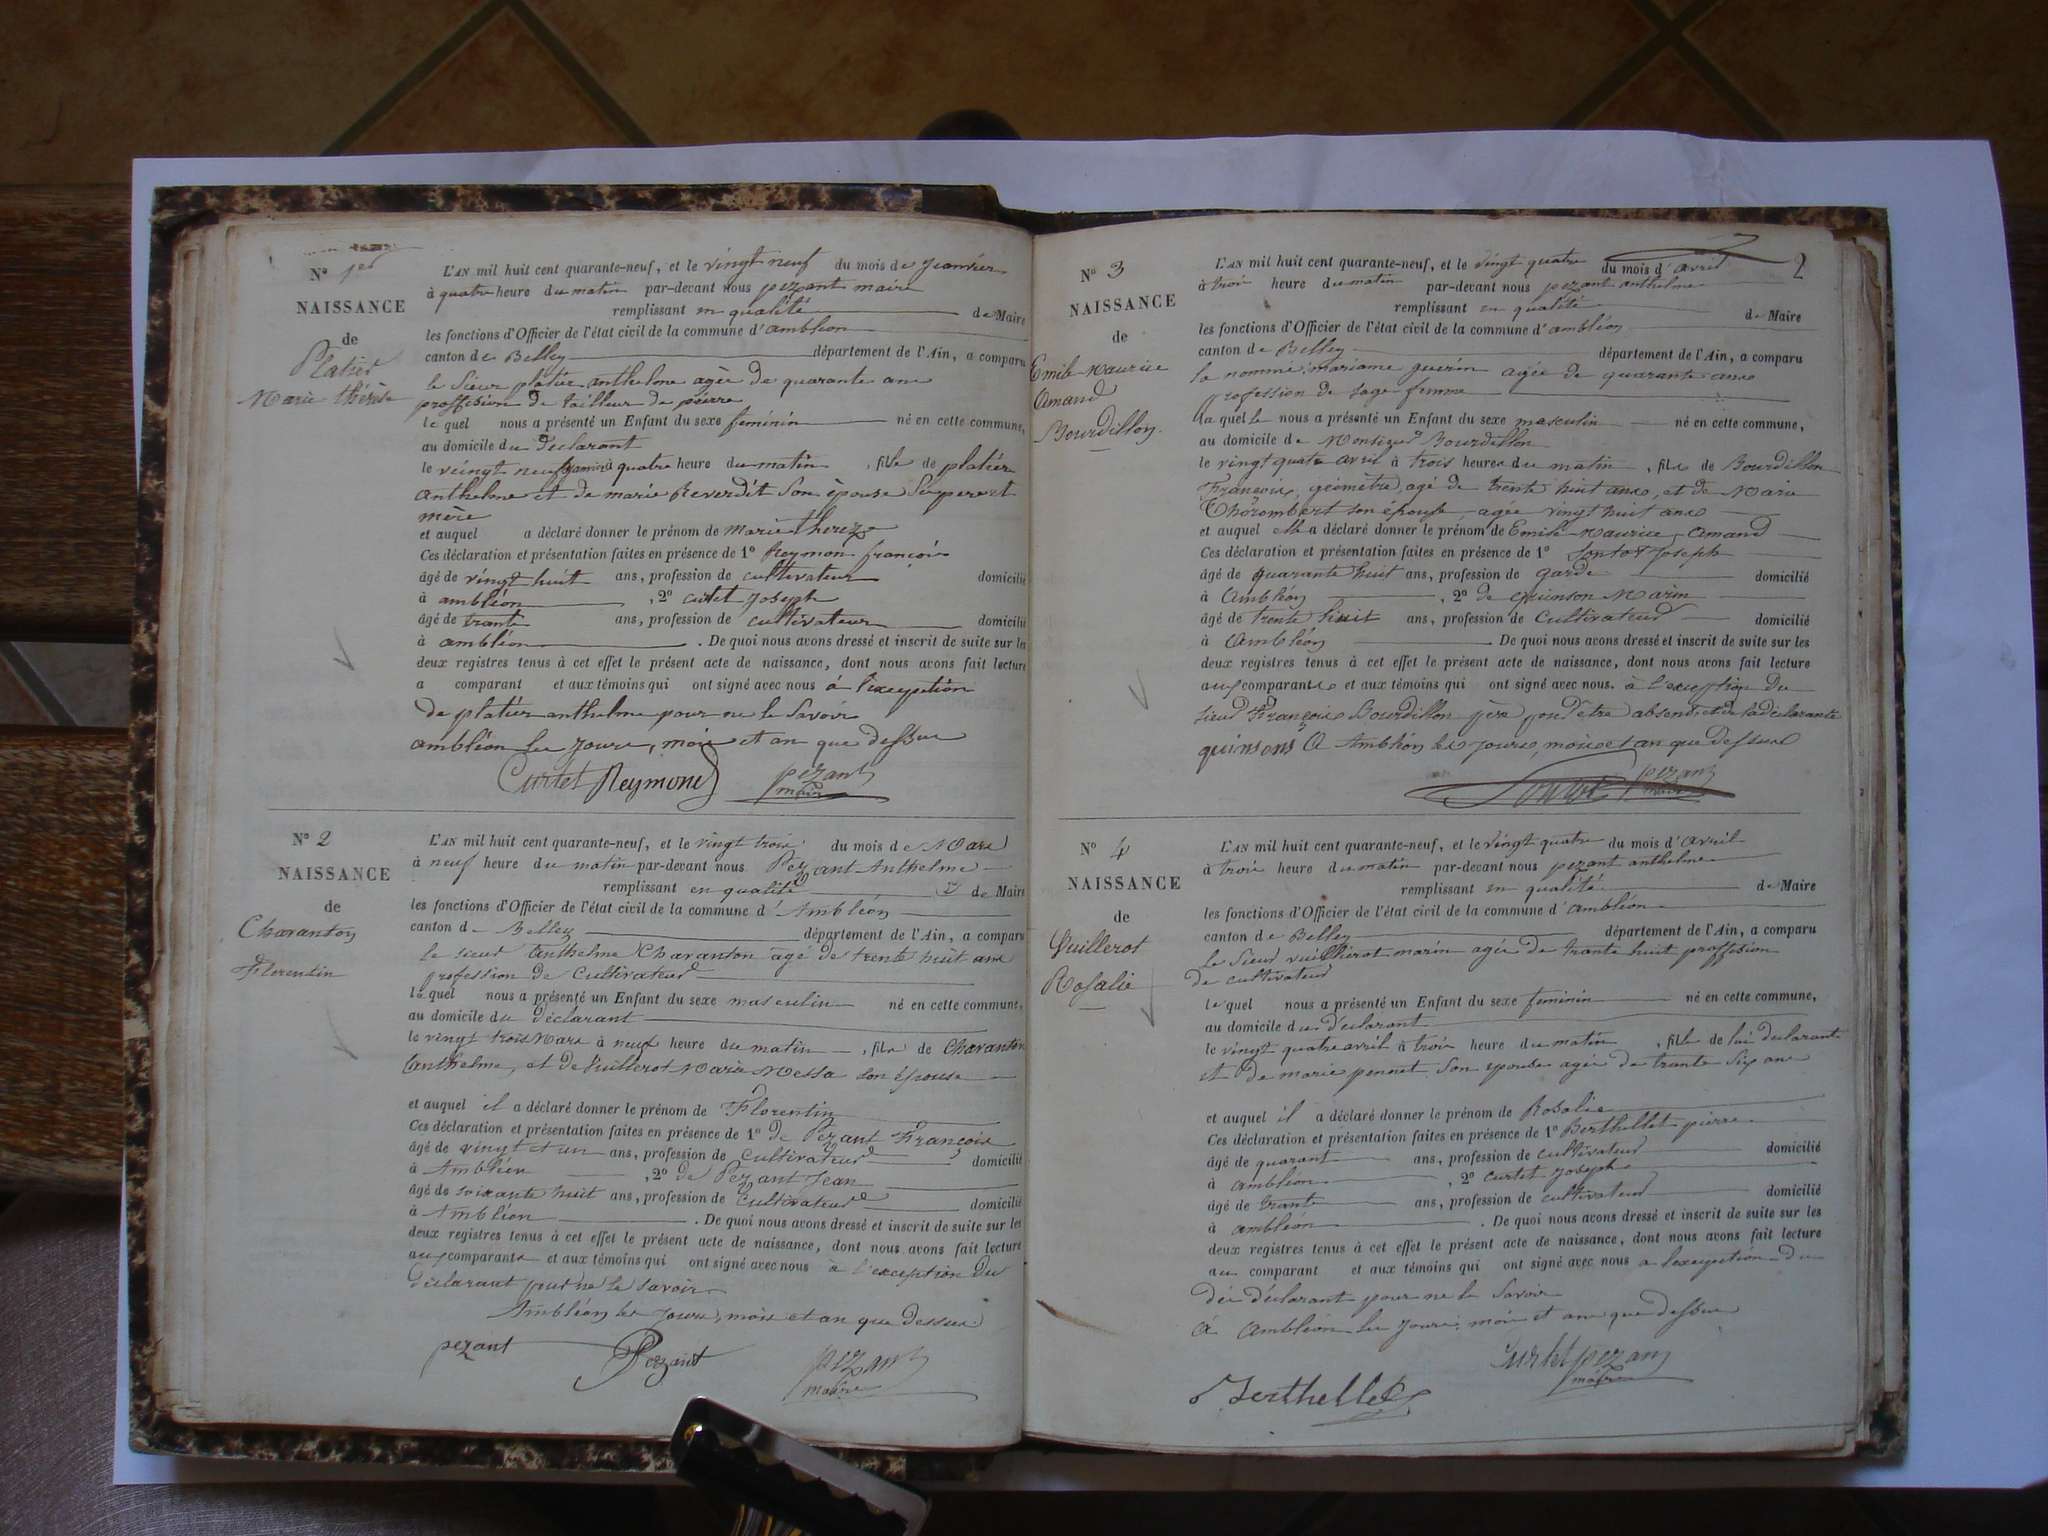 N° 1er
NAISSANCE
de
Platier
Marie thérèse
L'AN mil huit cent quarante-neuf, et le vingt neuf du mois de Janvier
à quatre heure du matin par-devant nous pezant maire
remplissant en qualité de Maire
les fonctions d'Officier de l'état civil de la commune d'ambléon
canton de Belley département de l'Ain, a comparu
le Sieur platier anthelme agèr de quarante ans
proffision de tailleur de pierre
le quel nous a présenté un Enfant du sexe feminin né en cette commune,
au domicile du declarant
le veingt neuf janvier à quatre heure du matin, fille de platier
anthelme et de marie Reverdit son épouse
mère
et auquel a déclaré donner le prénom de marie therez
Ces déclaration et présentation faites en présence de 1° Reymon françois
âgé de vingt huit ans, profession de cultivateur domicilié
à ambléon, 2° curtet joseph
âgé de trante ans, profession de cultivateur domicilié
à ambléon. De quoi nous avons dressé et inscrit de suite sur les
deux registres tenus à cet effet le présent acte de naissance, dont nous avons fait lecture
a comparant et aux témoins qui ont signé avec nous à l'exeyption
de platier anthelme pour ne le Savoir
ambléon les jours, mois et an que dessus
Curtet Reymond pezant
maire
N° 2
NAISSANCE
de
Charanton
Florentin
L'AN mil huit cent quarante-neuf, et le vingt trois du mois de Mars
à neuf heure du matin par-devant nous Pezant Anthelme
remplissant en qualité de Maire
les fonctions d'Officier de l'état civil de la commune d'Ambléon
canton de Belley département de l'Ain, a comparu
le sieur Anthelme Charanton agé de trente huit ans
profession de Cultivateur
le quel nous a présenté un Enfant du sexe masculin né en cette commune,
au domicile du déclarant
le vingt trois Mars à neuf heure du matin, fils de Charanton
Anthelme, et de Vuillerot Marie Messa son épouse
et auquel il a déclaré donner le prénom de Florentin
Ces déclaration et présentation faites en présence de 1° de Pezant François
âgé de vingt et un ans, profession de Cultivateur domicilié
à Ambléon, 2° de Pezant Jean
âgé de soixante huit ans, profession de Cultivateur domicilié
à Ambléon. De quoi nous avons dressé et inscrit de suite sur les
deux registres tenus à cet effet le présent acte de naissance, dont nous avons fait lecture
aux comparants et aux témoins qui ont signé avec nous à l'exception du
déclarant pour ne le savoir
Ambléon les jours, mois et an que dessus
pezant Pezant pezant
maire
2
N° 3
NAISSANCE
de
Emile Maurice
Amand
Bourdillon.
L'AN mil huit cent quarante-neuf, et le vingt quatre du mois d'avril
à trois heure du matin par-devant nous pezant anthelme
remplissant en qualité de Maire
les fonctions d'Officier de l'état civil de la commune d'ambléon
canton de Belley département de l'Ain, a comparu
la nommé mariame guérin agée de quarante ans
profession de sage femme
la quel le nous a présenté un Enfant du sexe masculin né en cette commune,
au domicile de Monsieur Bourdillon
le vingt quatre avril à trois heures du matin, fils de Bourdillon
François, géomètre, agé de trente huit ans, et de Marie
Thorombert son épouse, agée vingt huit ans
et auquel elle a déclaré donner le prénom de Emile Maurice, Amand
Ces déclaration et présentation faites en présence de 1° Joseph
âgé de quarante huit ans, profession de garde domicilié
à Ambléon, 2° de Quinson Marin
âgé de trente huit ans, profession de Cultivateur domicilié
à Ambléon De quoi nous avons dressé et inscrit de suite sur les
deux registres tenus à cet effet le présent acte de naissance, dont nous avons fait lecture
aux comparants et aux témoins qui ont signé avec nous. à l'exception du
sieur François Bourdillon père pour être absent, et de la déclarante
quinsons A Ambléon les jours, mois et an que dessus
pezant
maire
N° 4
NAISSANCE
de
Vuillerot
Rosalie
L'AN mil huit cent quarante-neuf, et le vingt quatre du mois d'avril
à trois heure du matin par-devant nous pezant anthelme
remplissant en qualité de Maire
les fonctions d'Officier de l'état civil de la commune d'ambléon
canton de Belley département de l'Ain, a comparu
le Sieur vuillierot marin agée de trante huit proffision
de cultivateur
le quel nous a présenté un Enfant du sexe feminin né en cette commune,
au domicile du déclarant
le vingt quatre avril à trois heure du matin, fille de lui declarant
et de marie pennet son epouse agée de trante six ans
et auquel il a déclaré donner le prénom de Rosalie
Ces déclaration et présentation faites en présence de 1° Berthellet pierre
âgé de quarant ans, profession de cultivateur domicilié
à ambléon, 2° curtet joseph
âgé de trante ans, profession de cultivateur domicilié
à ambléon. De quoi nous avons dressé et inscrit de suite sur les
deux registres tenus à cet effet le présent acte de naissance, dont nous avons fait lecture
au comparant et aux témoins qui ont signé avec nous a l'exeyption du
dit déclarant pour ne le Savoir
A Ambléon les jours, mois et ans que dessus
Curtet pezant
maire
Berthellet